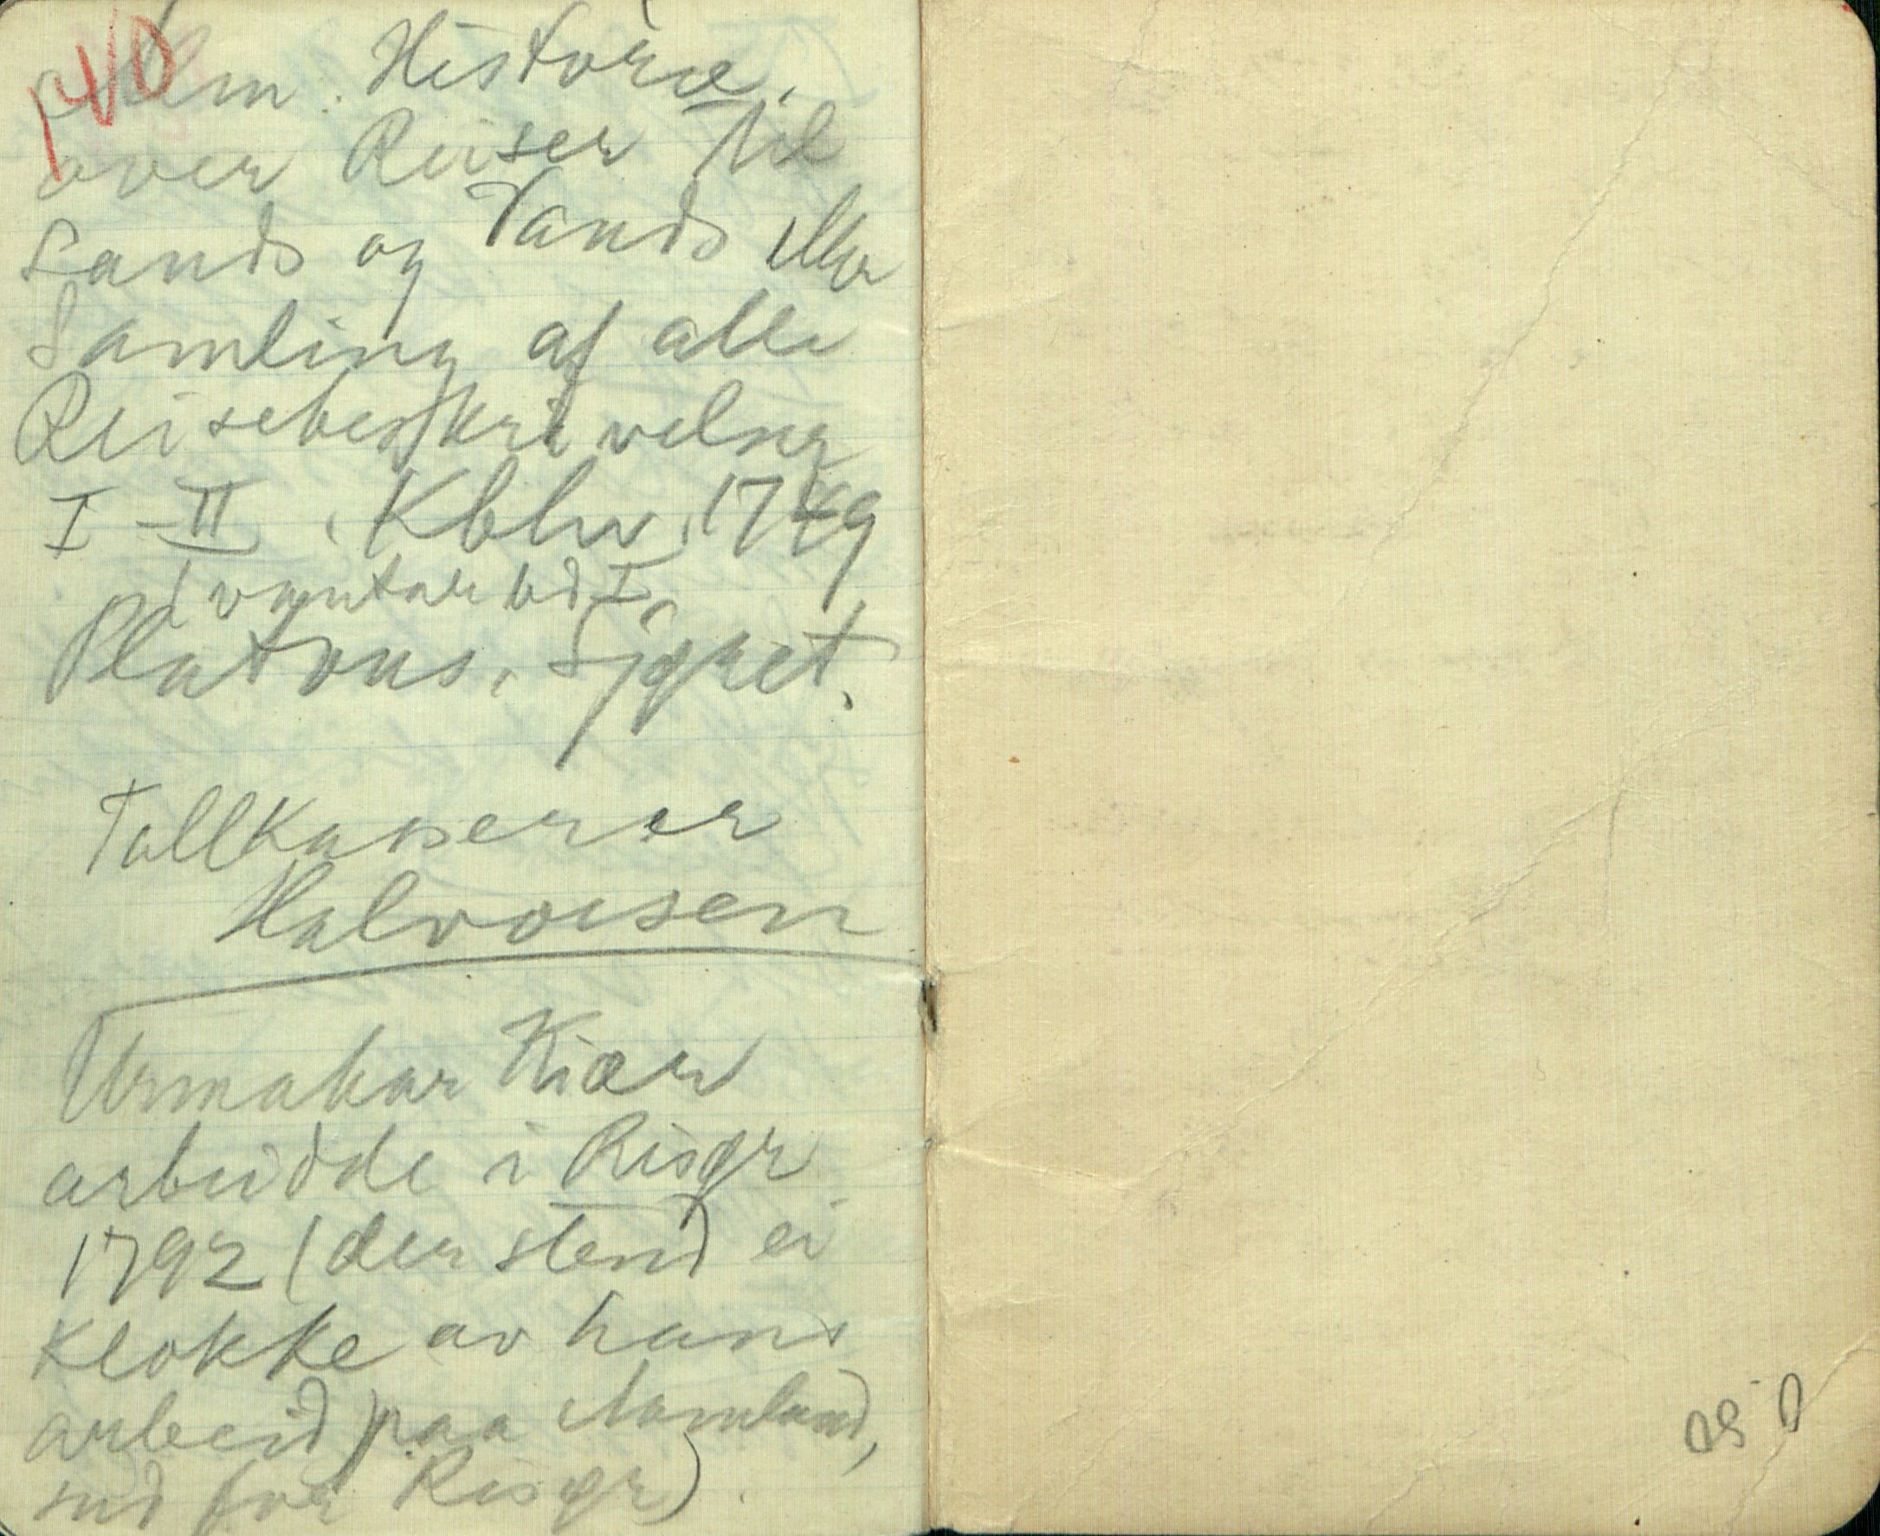 140
Alm. Historie
over Reiser til
Lands og Vands eller
Samling af alle
Reisebeskrivelser
I-II, Kbhv, 1749
(vantar bd I,
Platous, Sjgret.
Tollkasserer
Halvorsen
Urmakar Kiær
arbeidde i Risør
1792 (der stend ei
Klokke av hans
arbeid) paa
sud for Risør).
0.50